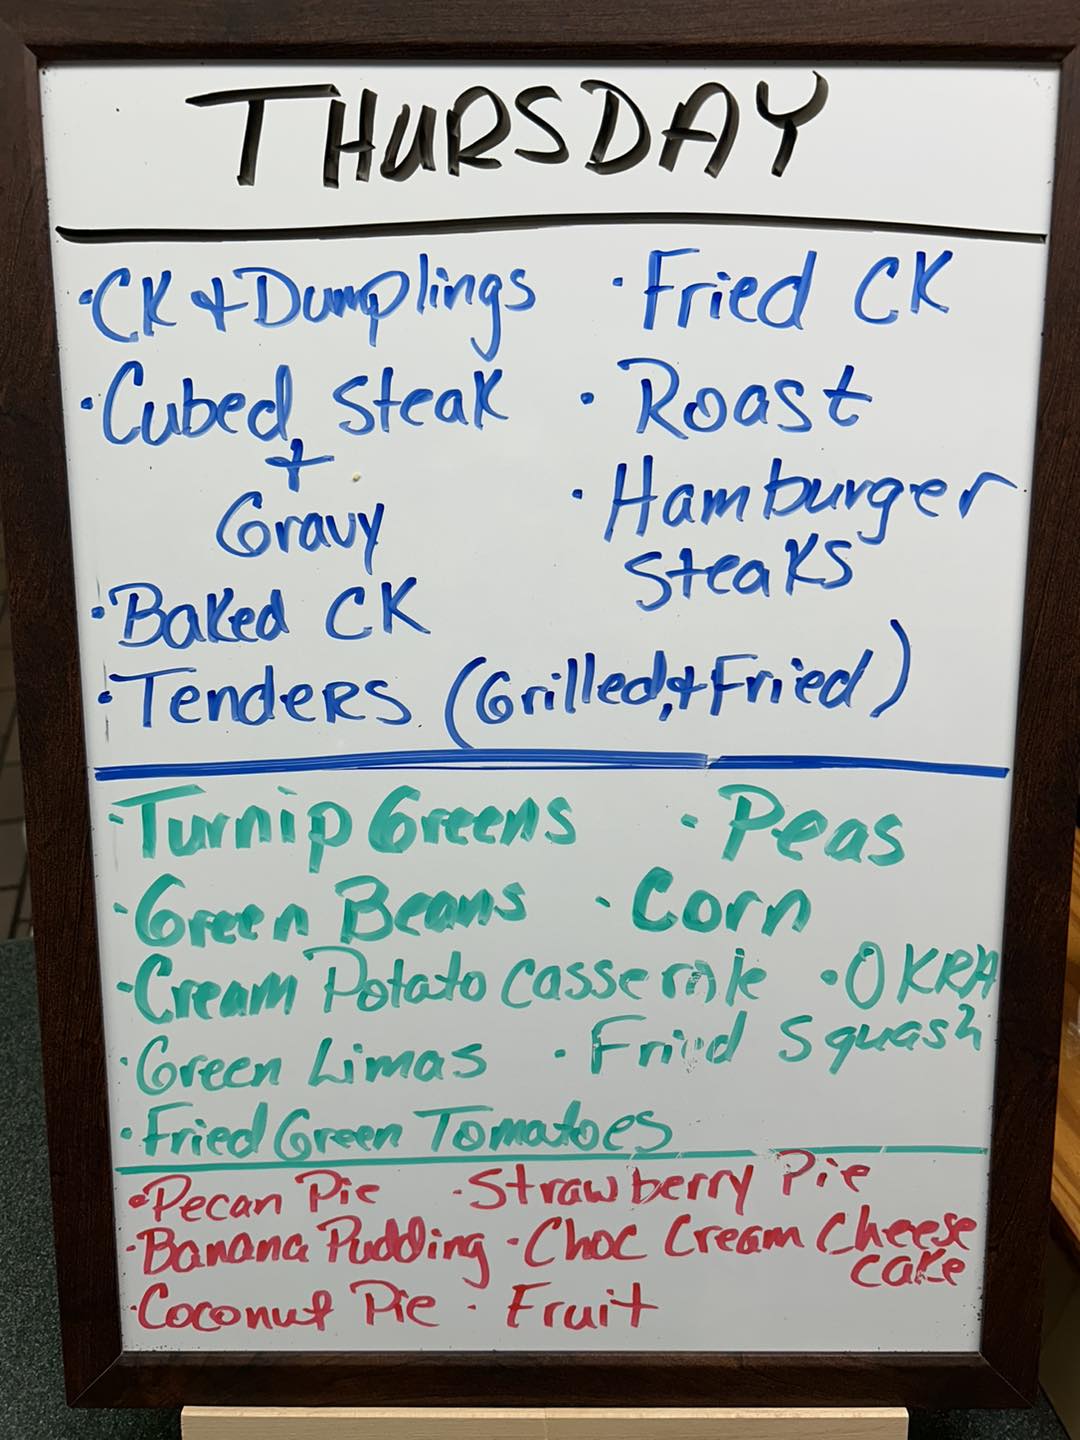 THURSDAY
· CK + Dumplings · Fried CK
· Cubed Steak · Roast
+
Gravy · Hamburger
Steaks
· Baked CK
· Tenders (Grilled + Fried)
· Turnip Greens · Peas
· Green Beans · Corn
· Cream Potato Casserole · OKRA
· Green Limas · Fried Squash
· Fried Green Tomatoes
· Pecan Pie · Strawberry Pie
· Banana Pudding · Choc Cream Cheese
cake
· Coconut Pie · Fruit